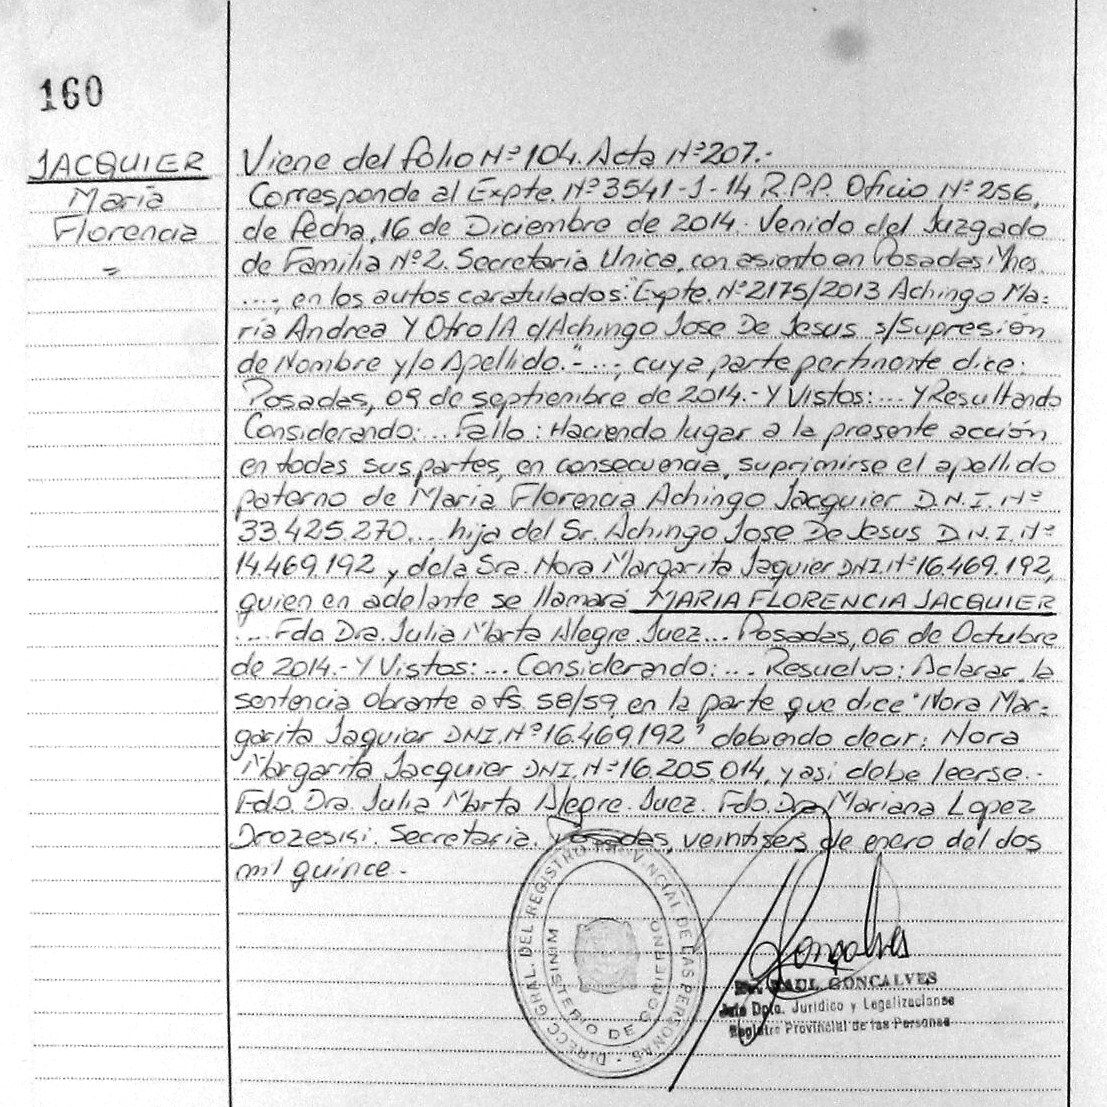 160
JACQUIER
María
Florencia
=
Viene del folio Nº 104. Acta Nº 207.-
Corresponde al Expte. Nº 3541-J-14 R.P.P. Oficio Nº 256,
de fecha, 16 de Diciembre de 2014. Venido del Juzgado
de Familia Nº 2. Secretaria Unica, con asiento en Posadas Mnes
....; en los autos caratulados: "Expte. Nº 2175/2013 Achingo Ma=
ría Andrea Y Otro/A d/Achingo Jose De Jesus s/Supresión
de Nombre y/o Apellido."-...; cuya parte pertinente dice:
Posadas, 09 de septiembre de 2014.- Y Vistos:... Y Resultando
Considerando:... Fallo: Haciendo lugar a la presente acción
en todas sus partes, en consecuencia, suprimirse el apellido
paterno de Maria Florencia Achingo Jacquier D.N.I. Nº
33.425.270.... hija del Sr. Achingo Jose De Jesus D.N.I. Nº
14.469.192 y de la Sra. Nora Margarita Jaquier DNI. Nº 16.469.192,
quien en adelante se llamará MARIA FLORENCIA JACQUIER
.... Fdo Dra. Julia Marta Alegre. Juez... Posadas, 06 de Octubre
de 2014.- Y Vistos:... Considerando:... Resuelvo: Aclarar la
sentencia obrante a fs. 58/59, en la parte que dice "Nora Mar=
garita Jaquier DNI. Nº 16.469.192" debiendo decir: Nora
Margarita Jacquier DNI. Nº 16.205.014, y asi debe leerse.-
Fdo. Dra. Julia Marta Alegre. Juez. Fdo. Dra. Mariana Lopez
Drozeski. Secretaria. Posadas, veintiseis de enero del dos
mil quince.-
DIRECC. GRAL. DEL REGISTRO PROVINCIAL DE LAS PERSONAS
MINISTERIO DE GOBIERNO
Goncalves
Dr. RAUL GONCALVES
Jefe Dpto. Jurídico y Legalizaciones
Registro Provincial de las Personas